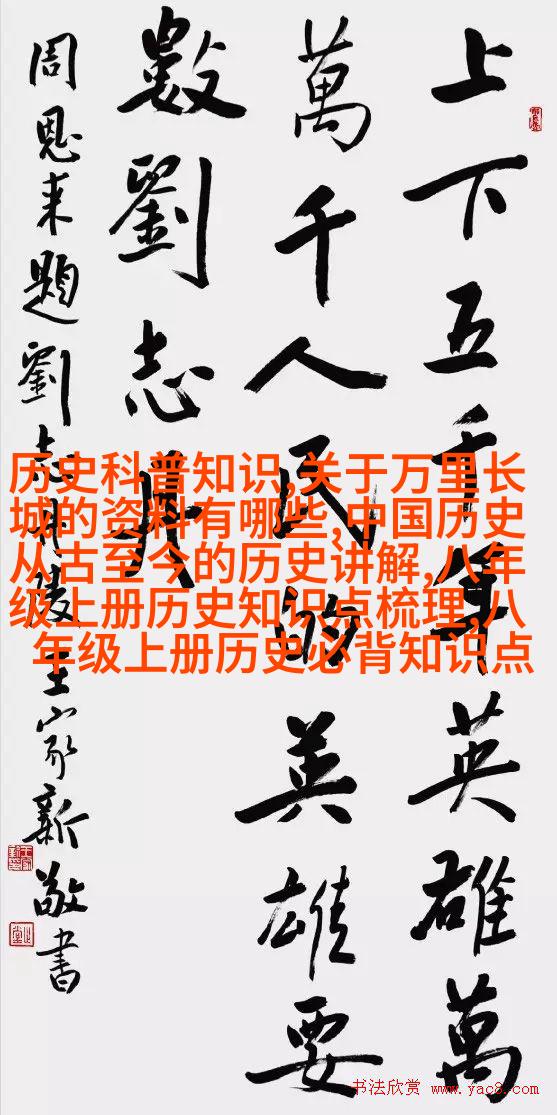 上下五千年英雄萬
萬千人民的英雄要
數劉志丹
周恩来題劉志丹陵王家新敬書
历史科普知识,关于万里长
城的资料有哪些,中国历史
从古至今的历史讲解,八年
级上册历史知识点梳理,八
年级上册历史必背知识点
书法欣赏 www.yac8.com